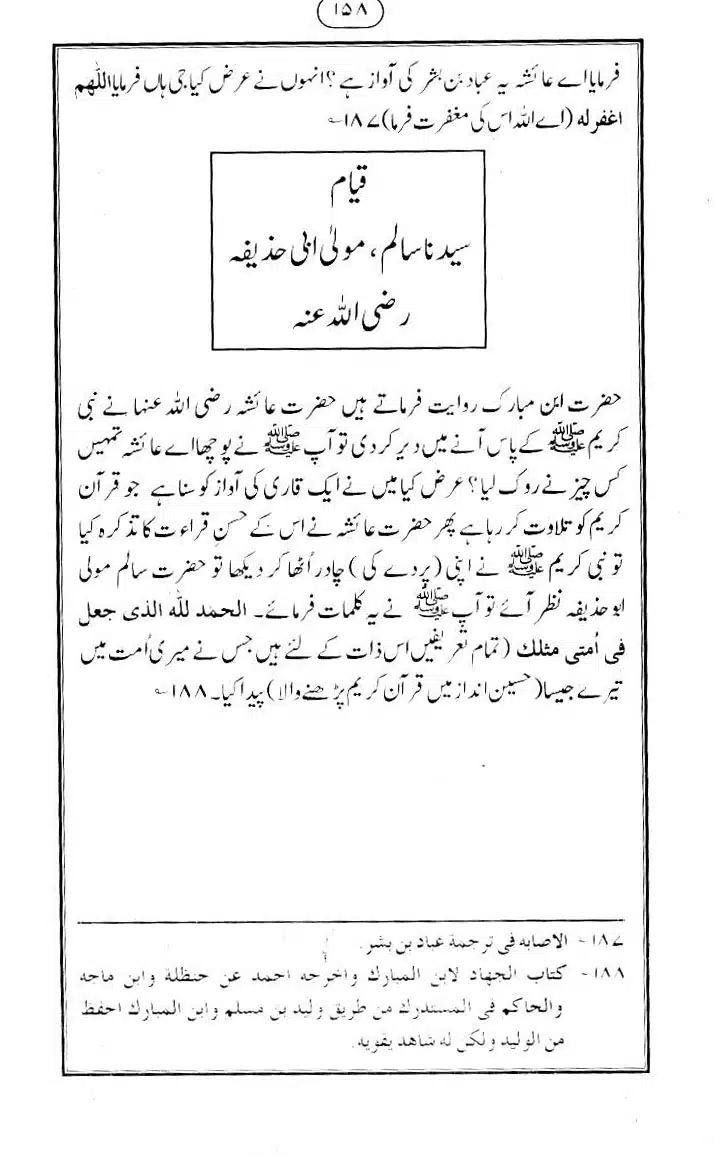 ۱۵۸
فرمایا اے عائشہ یہ عباد بن بشر کی آواز ہے؟ انہوں نے عرض کیا جی ہاں فرمایا اللهم
اغفر له (اے اللہ اس کی مغفرت فرما) ۱۸۷؎
قیام
سیدنا سالم، مولیٰ ابی حذیفہ
رضی اللہ عنہ
حضرت ابن مبارک روایت فرماتے ہیں حضرت عائشہ رضی اللہ عنہا نے نبی
کریم ﷺ کے پاس آنے میں دیر کر دی تو آپ ﷺ نے پوچھا اے عائشہ تمہیں
کس چیز نے روک لیا؟ عرض کیا میں نے ایک قاری کی آواز کو سنا ہے جو قرآن
کریم کو تلاوت کر رہا ہے پھر حضرت عائشہ نے اس کے حسنِ قراءت کا تذکرہ کیا
تو نبی کریم ﷺ نے اپنی (پردے کی) چادر اُٹھا کر دیکھا تو حضرت سالم مولی
ابو حذیفہ نظر آئے تو آپ ﷺ نے یہ کلمات فرمائے۔ الحمد للّٰه الذی جعل
فی اُمتی مثلك (تمام تعریفیں اس ذات کے لئے ہیں جس نے میری اُمت میں
تیرے جیسا (حسین انداز میں قرآن کریم پڑھنے والا) پیدا کیا۔ ۱۸۸؎
۱۸۷؎ الاصابه فی ترجمة عباد بن بشر.
۱۸۸؎ كتاب الجهاد لابن المبارك واخرجه احمد عن حنظلة وابن ماجه
والحاكم فی المستدرك من طريق وليد بن مسلم وابن المبارك احفظ
من الوليد ولكن له شاهد يقويه.